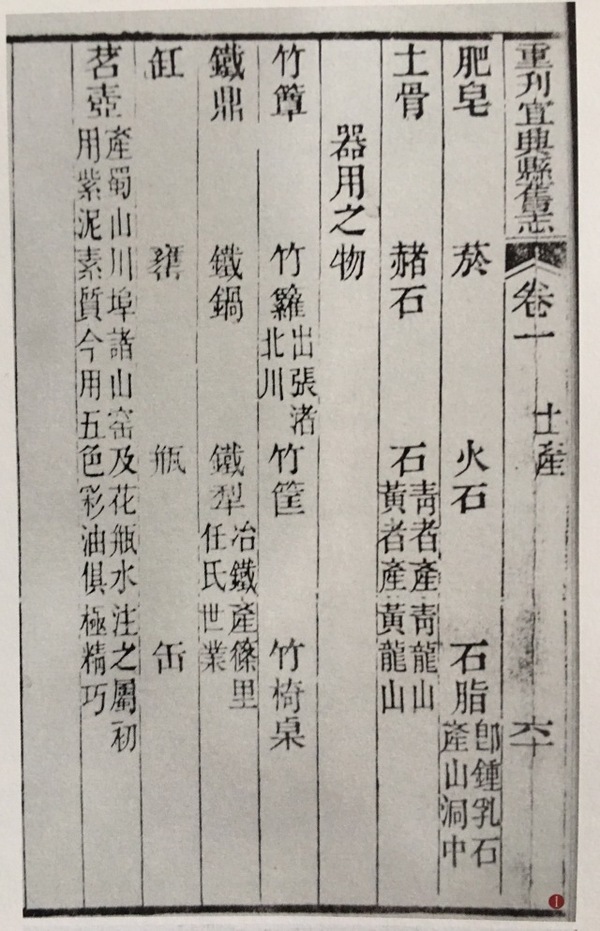 重刋宜興縣舊志 卷一 土產 六十
肥皂 菸 火石 石脂 卽鍾乳石產山洞中
土骨 赭石 石 靑者產靑龍山黃者產黃龍山
器用之物
竹簟 竹籮 出張渚北川 竹筐 竹椅桌
鐵鼎 鐵鍋 鐵犁 冶鐵產篠里任氏世業
缸 甕 瓶 缶
茗壺 產蜀山川埠諸山窑及花瓶水注之屬初用紫泥素質今用五色彩油俱極精巧
1